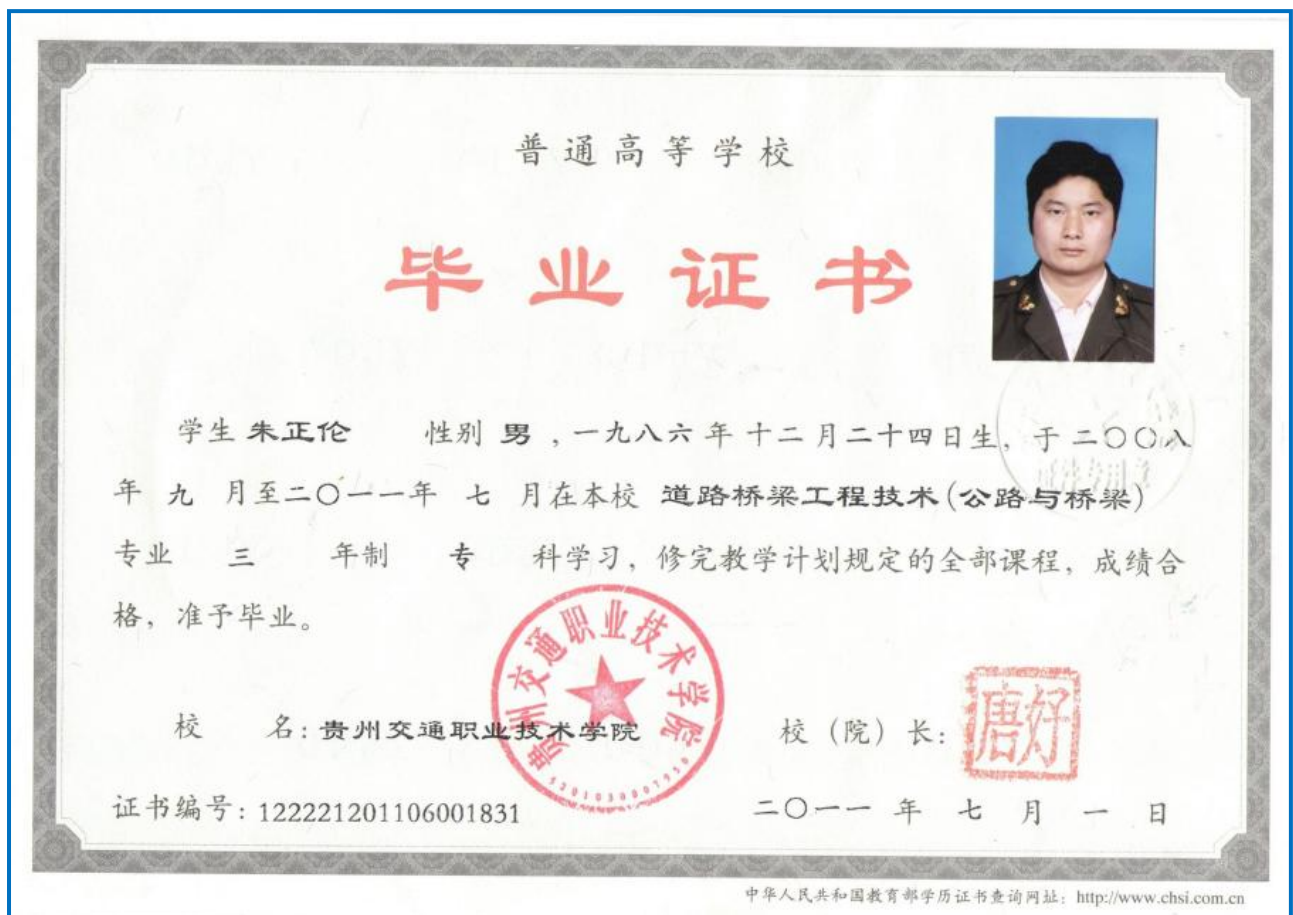 普通高等学校
毕业证书
学生 朱正伦 性别 男 , 一九八六 年 十二 月二十四日生, 于 二〇〇八
年 九 月至二〇一一年 七 月在本校 道路桥梁工程技术(公路与桥梁)
专业 三 年制 专 科学习, 修完教学计划规定的全部课程, 成绩合
格, 准予毕业。
贵州交通职业技术学院
校 名: 贵州交通职业技术学院 校（院）长:
唐好
证书编号: 122221201106001831 二〇一一 年 七 月 一 日
中华人民共和国教育部学历证书查询网址: http://www.chsi.com.cn